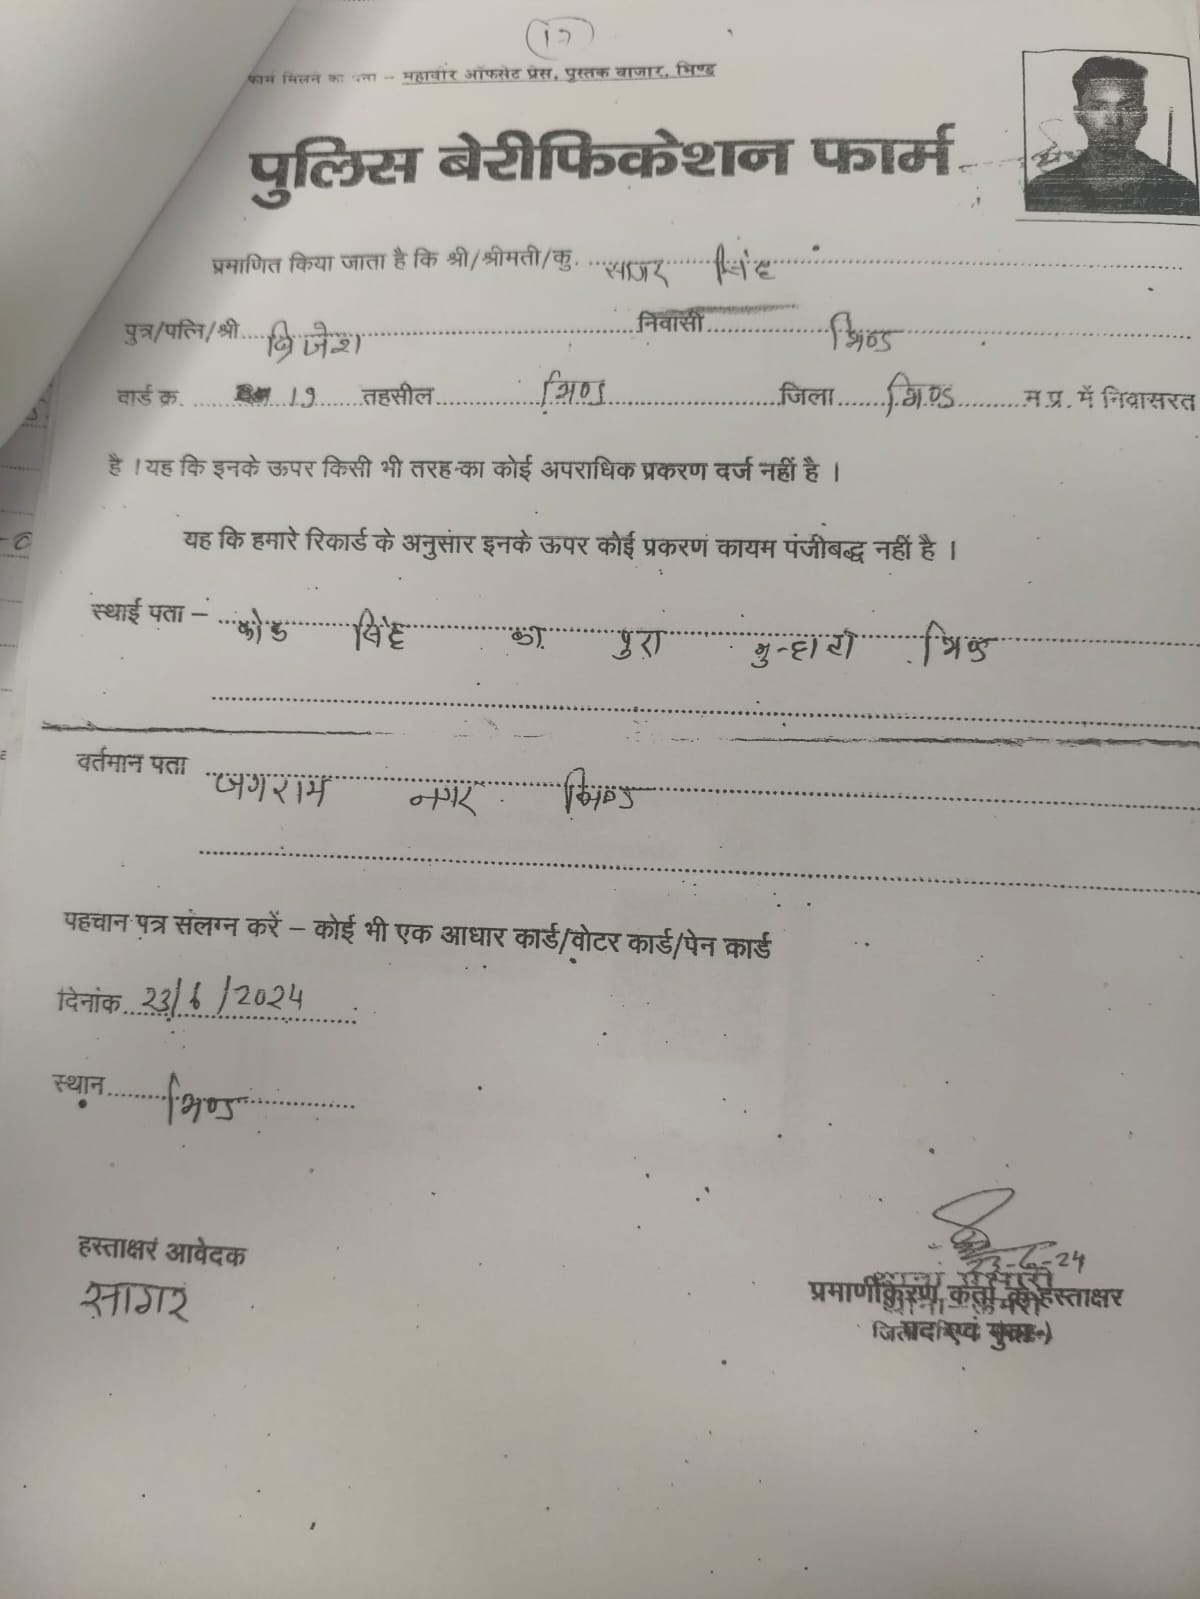 (17)
फार्म मिलने का पता – महावीर ऑफसेट प्रेस, पुस्तक बाजार, भिण्ड
पुलिस बेरीफिकेशन फार्म
प्रमाणित किया जाता है कि श्री/श्रीमती/कु. सागर सिंह
पुत्र/पत्नि/श्री ब्रिजेश निवासी भिण्ड
वार्ड क्र. 19 तहसील भिण्ड जिला भिण्ड म.प्र. में निवासरत
है । यह कि इनके ऊपर किसी भी तरह का कोई अपराधिक प्रकरण दर्ज नहीं है ।
यह कि हमारे रिकार्ड के अनुसार इनके ऊपर कोई प्रकरण कायम पंजीबद्ध नहीं है ।
स्थाई पता – कोड सिंह का पुरा भिण्ड
वर्तमान पता जगराम नगर भिण्ड
पहचान पत्र संलग्न करें – कोई भी एक आधार कार्ड/वोटर कार्ड/पेन कार्ड
दिनांक 23/6/2024
स्थान भिण्ड
हस्ताक्षर आवेदक
सागर
23-6-24
प्रमाणीकरण कर्ता के हस्ताक्षर
पद एवं मुद्रा